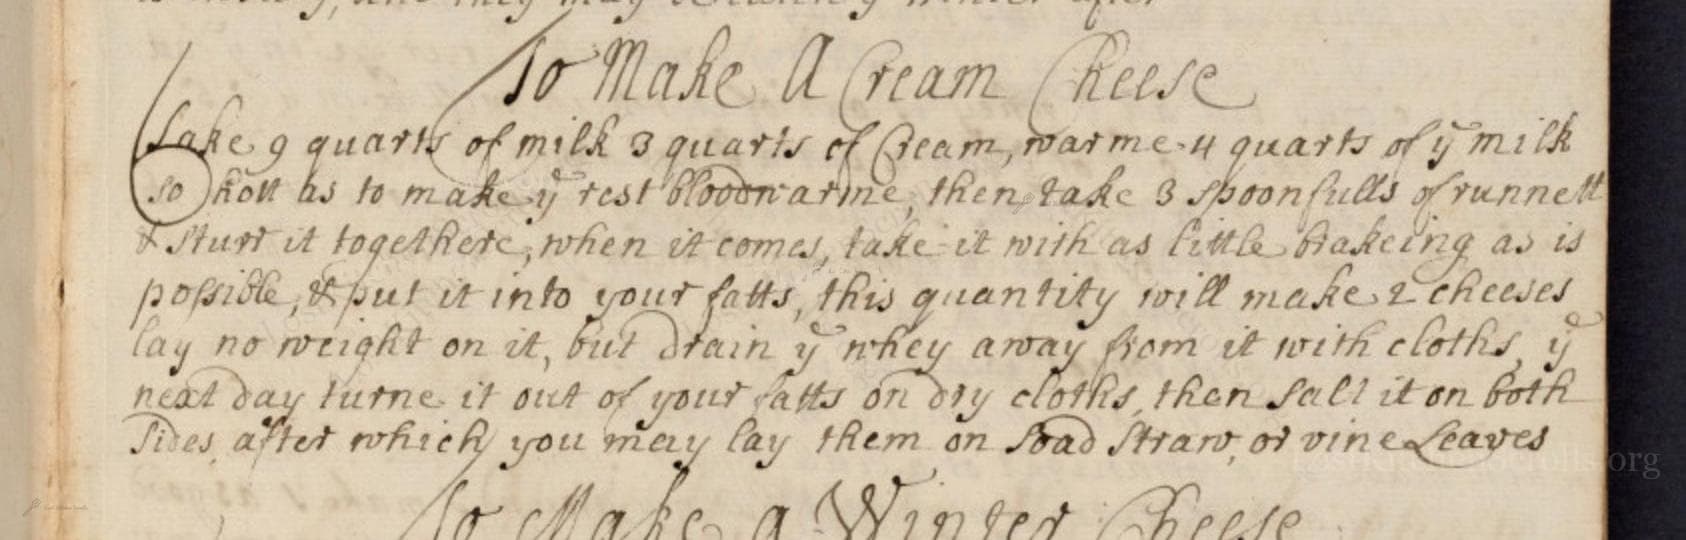 To Make A Cream Cheese
Take 9 quarts of milk 3 quarts of Cream, warme 4 quarts of yͤ milk
so hott as to make yͤ rest bloodwarme, then take 3 spoonfulls of runnett
& sturr it togethere, when it comes, take it with as little brakeing as is
possible, & put it into your fatts, this quantity will make 2 cheeses
lay no weight on it, but Drain yͤ whey away from it with cloths, yͤ
next day turne it out of your fatts on dry cloths, then salt it on both
sides, after which you may lay them on Straw, or vine Leaves
To Make a Winter Cheese